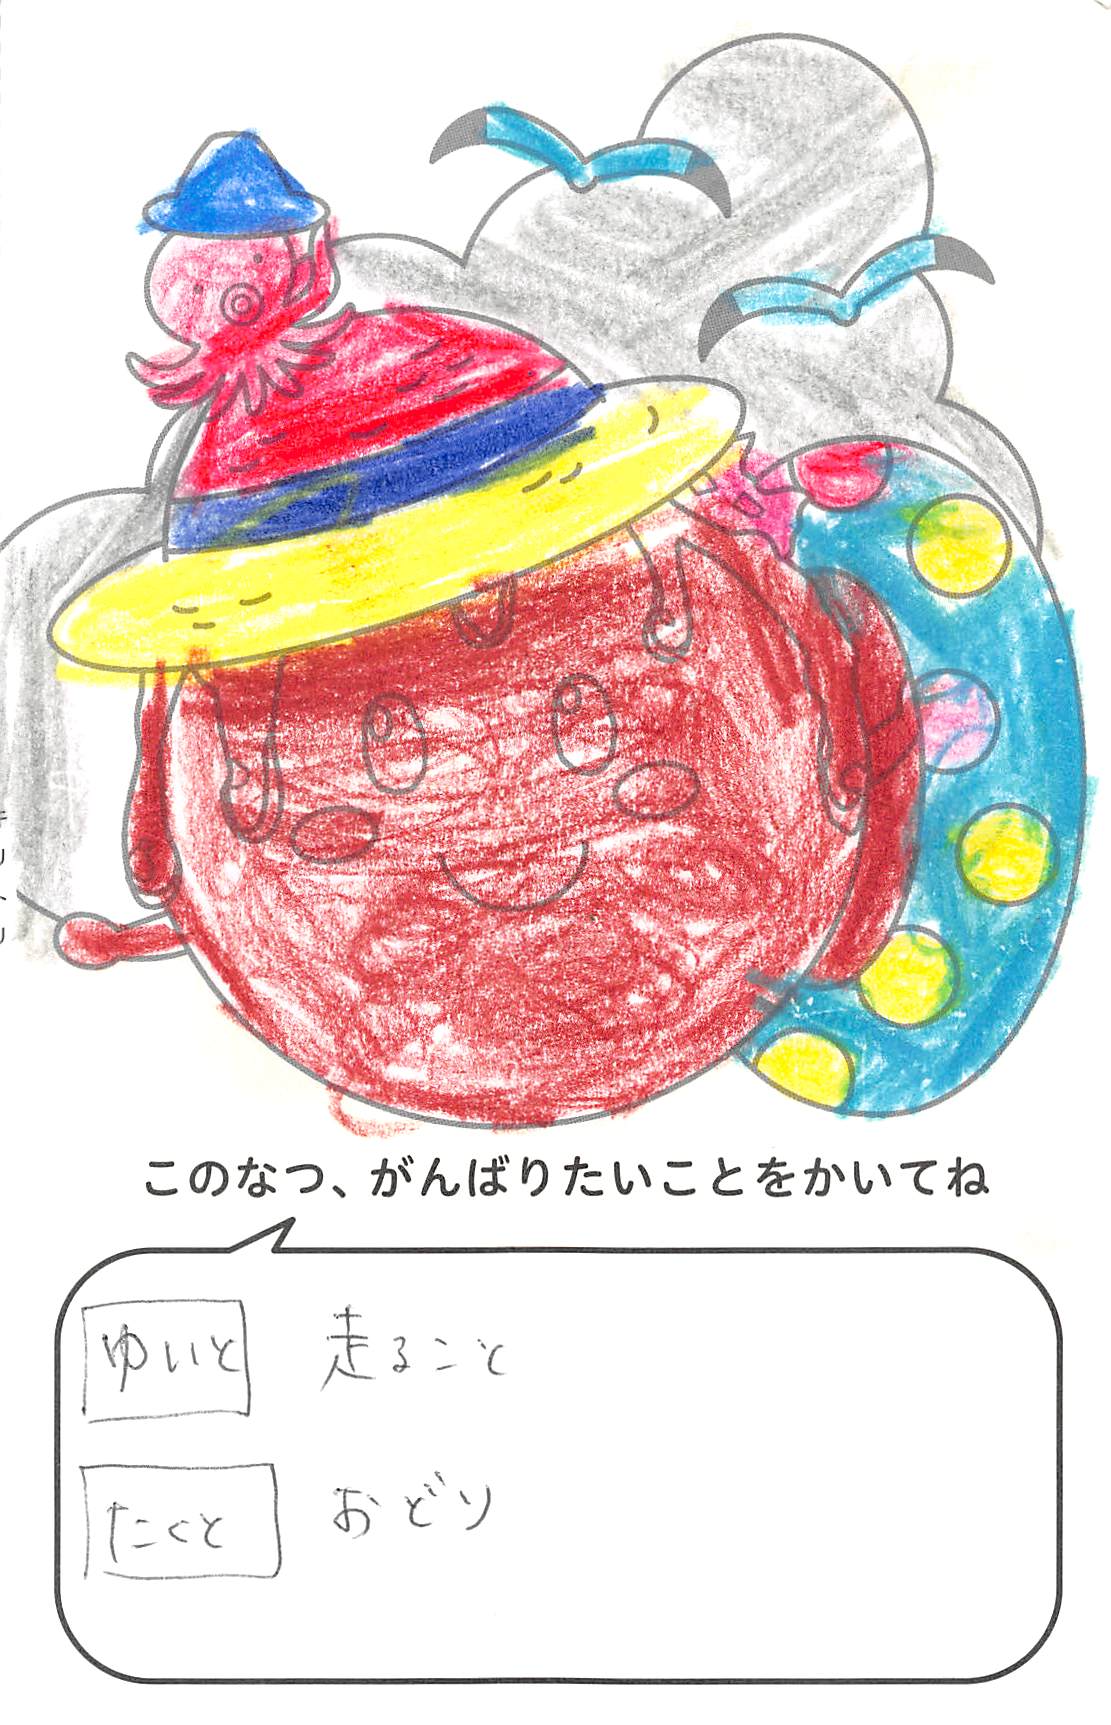 このなつ、がんばりたいことをかいてね
ゆいと 走ること
たくと おどり